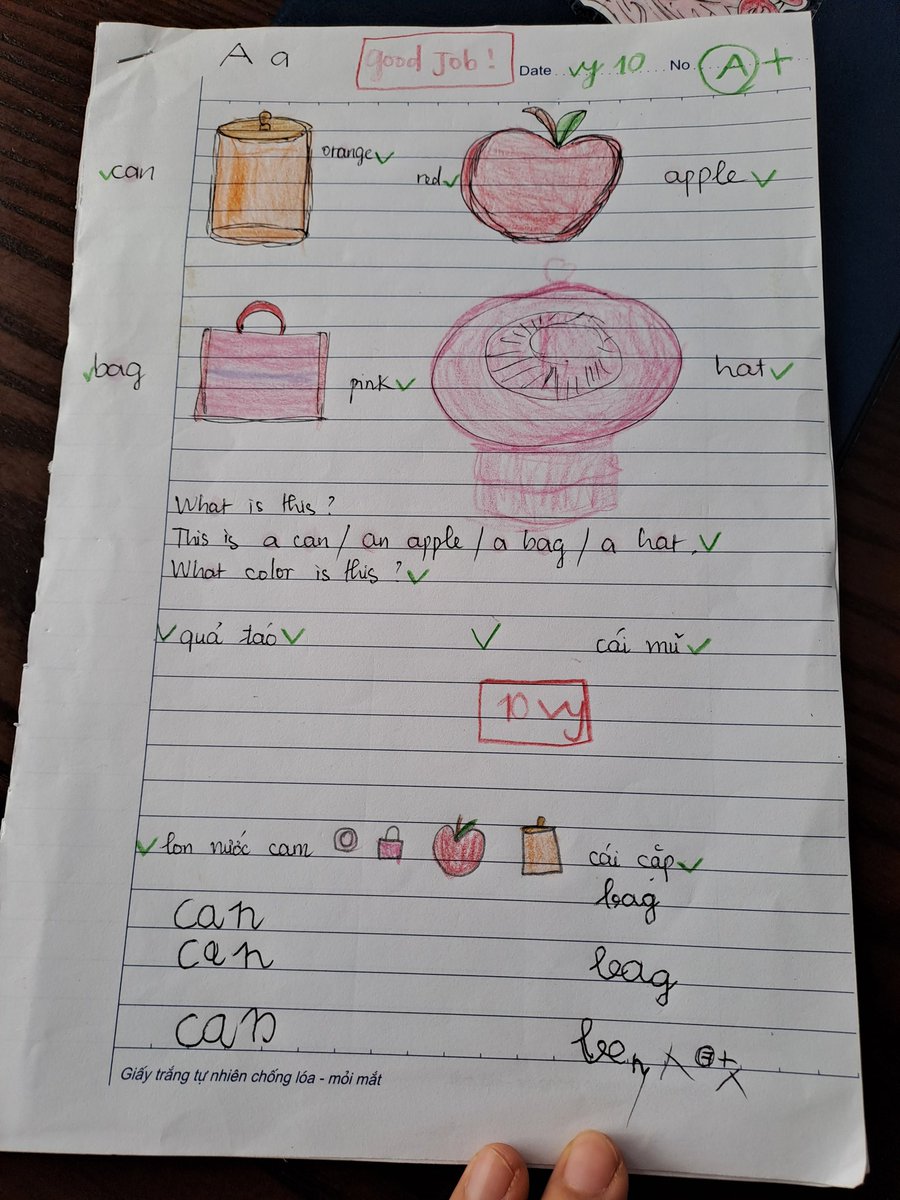 A a good Job! Date vy 10 No. A+
can orange red apple
bag pink hat
What is this?
This is a can / an apple / a bag / a hat.
What color is this?
quả táo cái mũ
10 vy
lon nước cam cái cặp
bag
can
can bag
can
Giấy trắng tự nhiên chống lóa - mỏi mắt